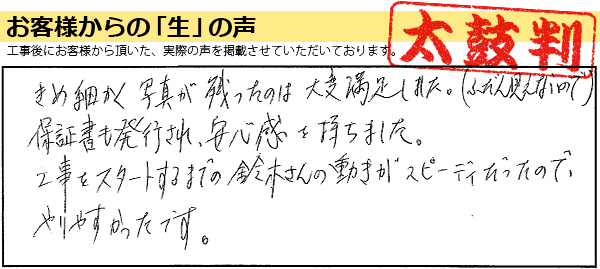 お客様からの「生」の声
工事後にお客様から頂いた、実際の声を掲載させていただいております。
太鼓判
きめ細かく写真が残ったのは大変満足しました。(ふだん見えないので)
保証書も発行され、安心感を持ちました。
工事をスタートするまでの鈴木さんの動きがスピーディだったので、
やりやすかったです。